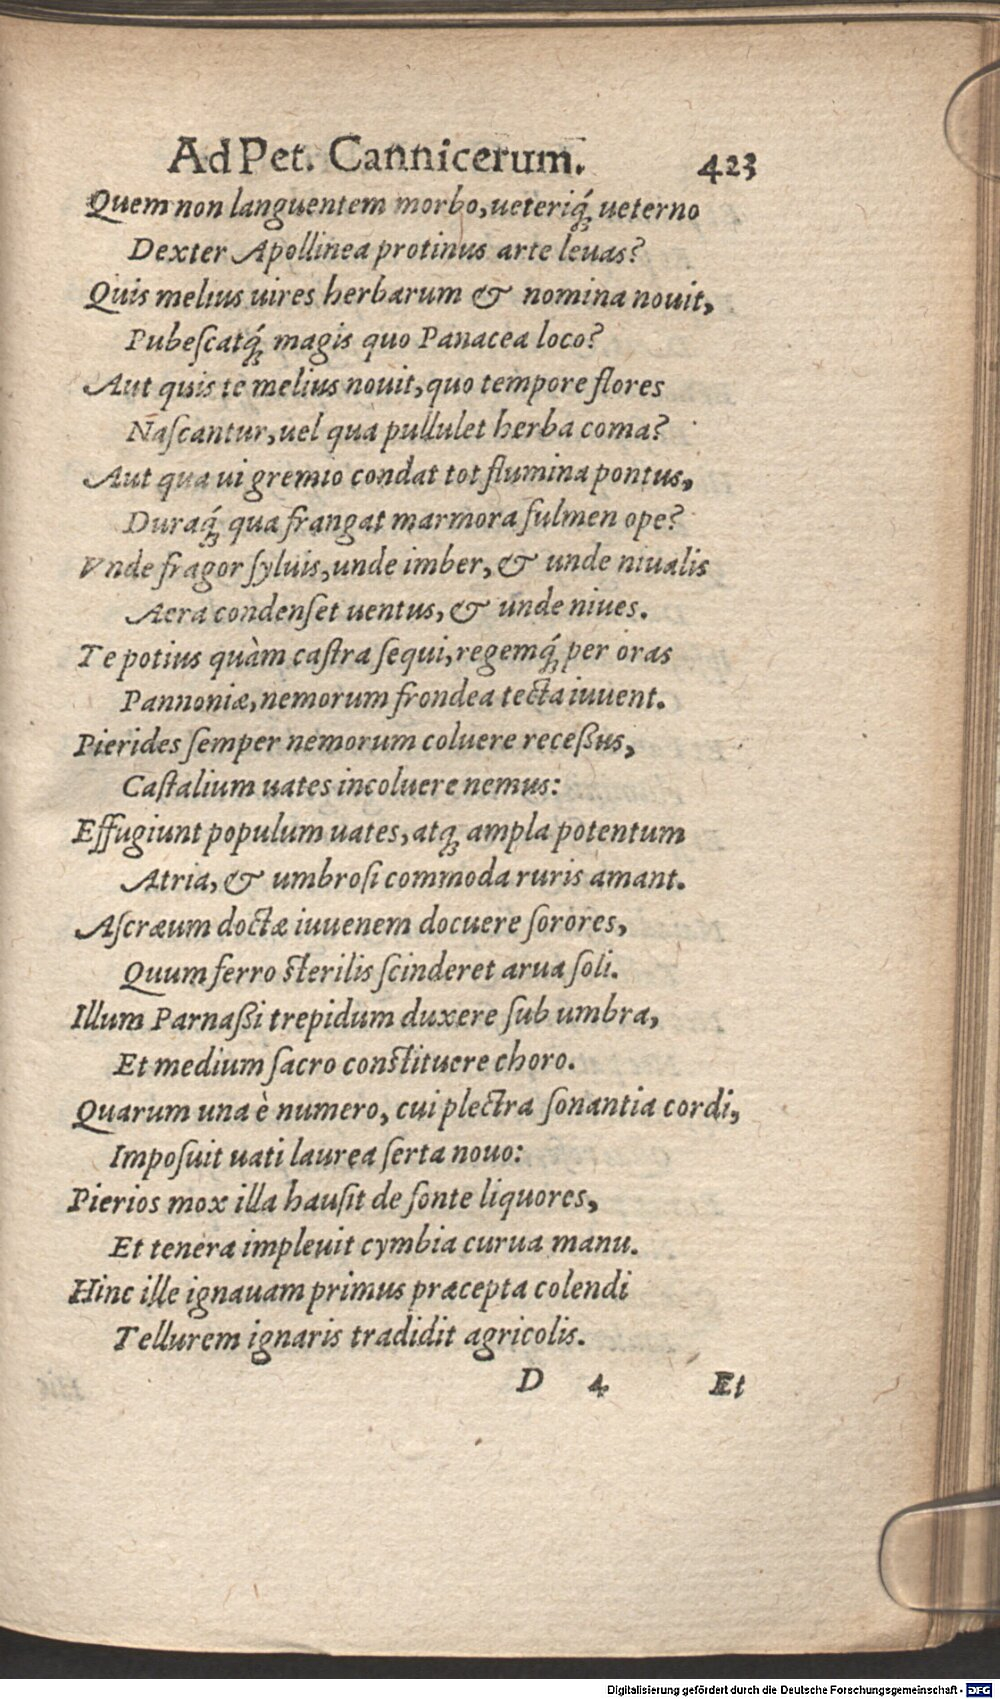 Ad Pet. Cannicerum. 423
Quem non languentem morbo, ueteriq́ꝫ ueterno
Dexter Apollinea protinus arte leuas?
Quis melius uires herbarum & nomina nouit,
Pubeſcatq́ꝫ magis quo Panacea loco?
Aut quis te melius nouit, quo tempore flores
Naſcantur, uel qua pullulet herba coma?
Aut qua ui gremio condat tot flumina pontus,
Duraq́ꝫ qua frangat marmora fulmen ope?
Vnde fragor ſyluis, unde imber, & unde niualis
Aera condenſet uentus, & unde niues.
Te potius quàm caſtra ſequi, regemq́ꝫ per oras
Pannoniæ, nemorum frondea tecta iuuent.
Pierides ſemper nemorum coluere receßus,
Caſtalium uates incoluere nemus:
Effugiunt populum uates, atqꝫ ampla potentum
Atria, & umbroſi commoda ruris amant.
Aſcræum doctæ iuuenem docuere ſorores,
Quum ferro ſterilis ſcinderet arua ſoli.
Illum Parnaßi trepidum duxere ſub umbra,
Et medium ſacro conſtituere choro.
Quarum una è numero, cui plectra ſonantia cordi,
Impoſuit uati laurea ſerta nouo:
Pierios mox illa hauſit de fonte liquores,
Et tenera impleuit cymbia curua manu.
Hinc ille ignauam primus præcepta colendi
Tellurem ignaris tradidit agricolis.
D 4 Et
Digitalisierung gefördert durch die Deutsche Forschungsgemeinschaft - DFG